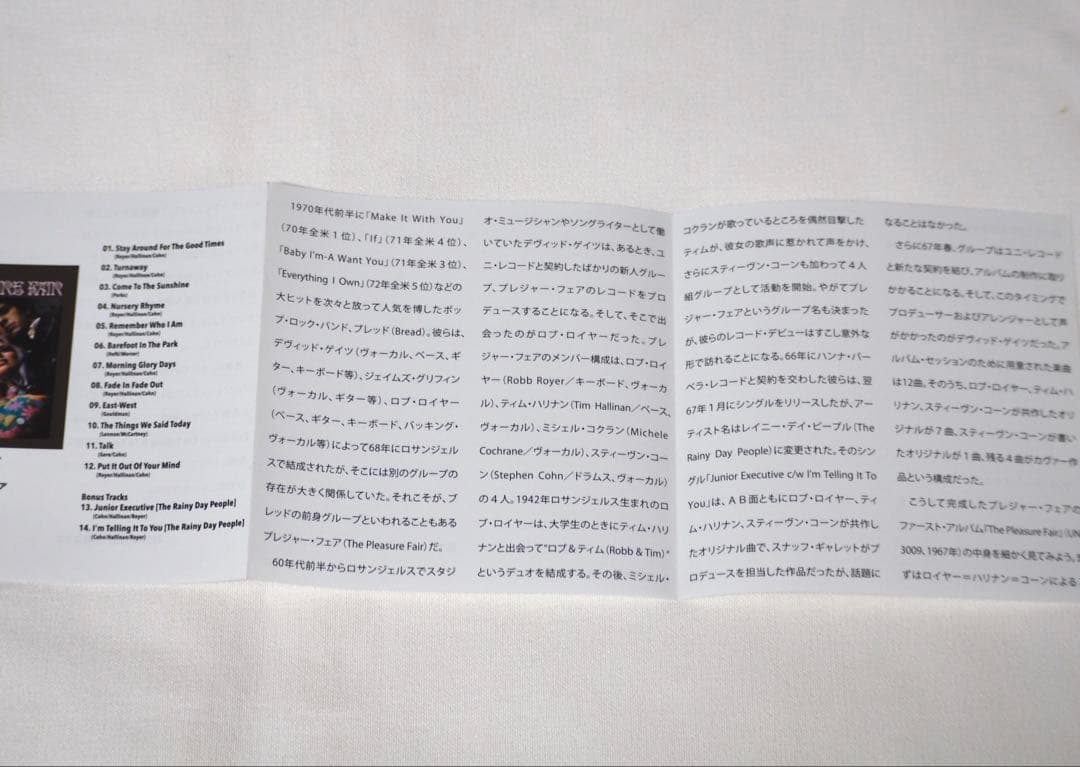 RE FAIR
01. Stay Around For The Good Times
(Royer/Hallinan/Cohn)
02. Turnaway
(Royer/Hallinan/Cohn)
03. Come To The Sunshine
(Parks)
04. Nursery Rhyme
(Royer/Hallinan/Cohn)
05. Remember Who I Am
(Royer/Hallinan/Cohn)
06. Barefoot In The Park
(Hefti/Mercer)
07. Morning Glory Days
(Royer/Hallinan/Cohn)
08. Fade In Fade Out
(Royer/Hallinan/Cohn)
09. East-West
(Gouldman)
10. The Things We Said Today
(Lennon/McCartney)
11. Talk
12. Put It Out Of Your Mind
(Royer/Hallinan/Cohn)
Bonus Tracks
13. Junior Executive [The Rainy Day People]
(Cohn/Hallinan/Royer)
14. I'm Telling It To You [The Rainy Day People]
(Cohn/Hallinan/Royer)
1970年代前半に「Make It With You」
(70年全米1位)、「If」(71年全米4位)、
「Baby I'm-A Want You」(71年全米3位)、
「Everything I Own」(72年全米5位)などの
大ヒットを次々と放って人気を博したポッ
プ・ロック・バンド、ブレッド(Bread)。彼らは、
デヴィッド・ゲイツ(ヴォーカル、ベース、ギ
ター、キーボード等)、ジェイムズ・グリフィン
(ヴォーカル、ギター等)、ロブ・ロイヤー
(ベース、ギター、キーボード、バッキング・
ヴォーカル等)によって68年にロサンジェル
スで結成されたが、そこには別のグループの
存在が大きく関係していた。それこそが、ブ
レッドの前身グループといわれることもある
プレジャー・フェア(The Pleasure Fair)だ。
60年代前半からロサンジェルスでスタジ
オ・ミュージシャンやソングライターとして働
いていたデヴィッド・ゲイツは、あるとき、ユ
ニ・レコードと契約したばかりの新人グルー
プ、プレジャー・フェアのレコードをプロ
デュースすることになる。そして、そこで出
会ったのがロブ・ロイヤーだった。プレ
ジャー・フェアのメンバー構成は、ロブ・ロイ
ヤー(Robb Royer/キーボード、ヴォーカ
ル)、ティム・ハリナン(Tim Hallinan/ベース、
ヴォーカル)、ミシェル・コクラン(Michele
Cochrane/ヴォーカル)、スティーヴン・コーン
(Stephen Cohn/ドラムス、ヴォーカル)
の4人。1942年ロサンジェルス生まれのロ
ブ・ロイヤーは、大学生のときにティム・ハリ
ナンと出会って"ロブ&ティム(Robb & Tim)"
というデュオを結成する。その後、ミシェル・
コクランが歌っているところを偶然目撃した
ティムが、彼女の歌声に惹かれて声をかけ、
さらにスティーヴン・コーンも加わって4人
組グループとして活動を開始。やがてプレ
ジャー・フェアというグループ名も決まった
が、彼らのレコード・デビューはすこし意外な
形で訪れることになる。66年にハンナ・バー
ベラ・レコードと契約を交わした彼らは、翌
67年1月にシングルをリリースしたが、アー
ティスト名はレイニー・デイ・ピープル(The
Rainy Day People)に変更された。そのシン
グル「Junior Executive c/w I'm Telling It To
You」は、AB面ともにロブ・ロイヤー、ティ
ム・ハリナン、スティーヴン・コーンが共作し
たオリジナル曲で、スナッフ・ギャレットがプ
ロデュースを担当した作品だったが、話題に
なることはなかった。
さらに67年春、グループはユニ・レコード
と新たな契約を結び、アルバムの制作に取り
かかることになる。そして、このタイミングで
プロデューサーおよびアレンジャーとして声
がかかったのがデヴィッド・ゲイツだった。ア
ルバム・セッションのために用意された楽曲
は12曲。そのうち、ロブ・ロイヤー、ティム・ハ
リナン、スティーヴン・コーンが共作したオリ
ジナルが7曲、スティーヴン・コーンが書い
たオリジナルが1曲、残る4曲がカヴァー作
品という構成だった。
こうして完成したプレジャー・フェアの
ファースト・アルバム『The Pleasure Fair』(UN
3009, 1967年)の中身を細かく見てみよう。
ずはロイヤー=ハリナン=コーンによる